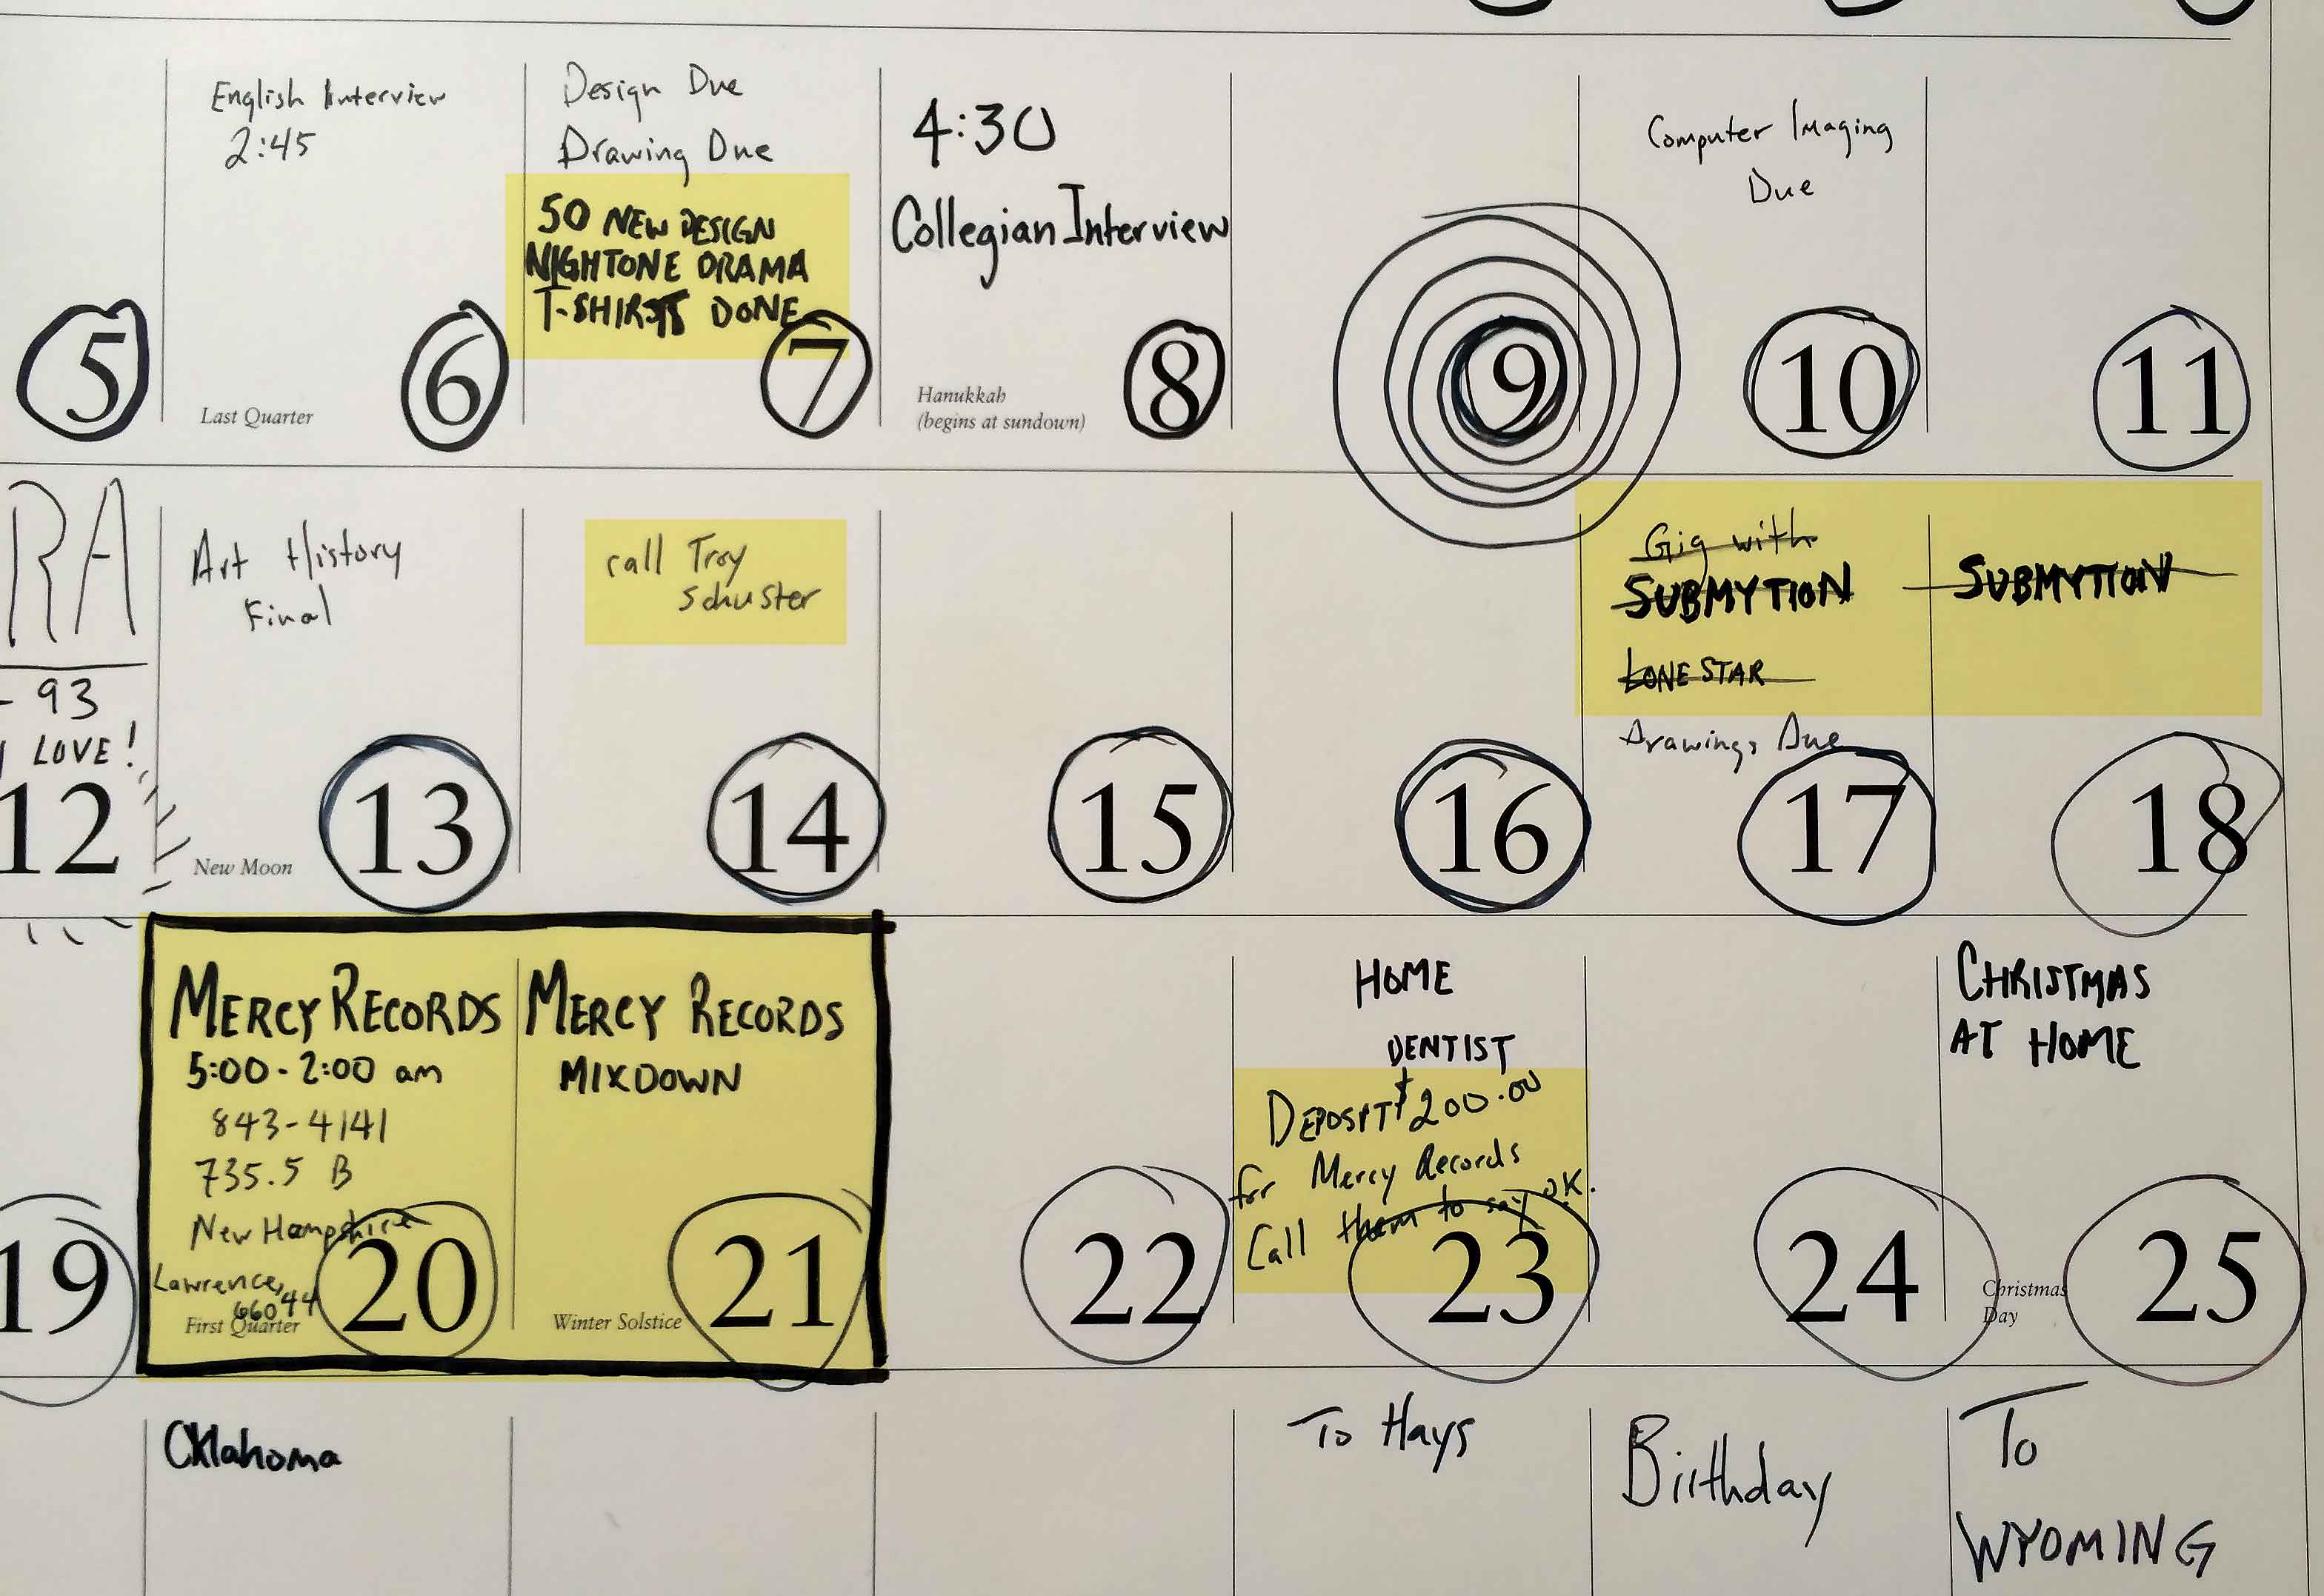 English Interview
2:45
Last Quarter
5
6
Design Due
Drawing Due
50 NEW DESIGN
NIGHTONE DRAMA
T-SHIRTS DONE
7
4:30
Collegian Interview
Hanukkah
(begins at sundown)
8
9
Computer Imaging
Due
10
11
RA
- 93
LOVE!
12
Art History
Final
New Moon
13
call Troy
Schuster
14
15
16
Gig with
SUBMYTION
LONE STAR
Drawings Due
17
SUBMYTION
18
19
MERCY RECORDS
5:00-2:00 am
843-4141
735.5 B
New Hampshire
Lawrence,
66044
First Quarter
20
MERCY RECORDS
MIXDOWN
Winter Solstice
21
22
HOME
DENTIST
DEPOSIT $200.00
for Mercy Records
Call them to say OK.
23
24
CHRISTMAS
AT HOME
Christmas
Day
25
Oklahoma
To Hays
Birthday
To
WYOMING